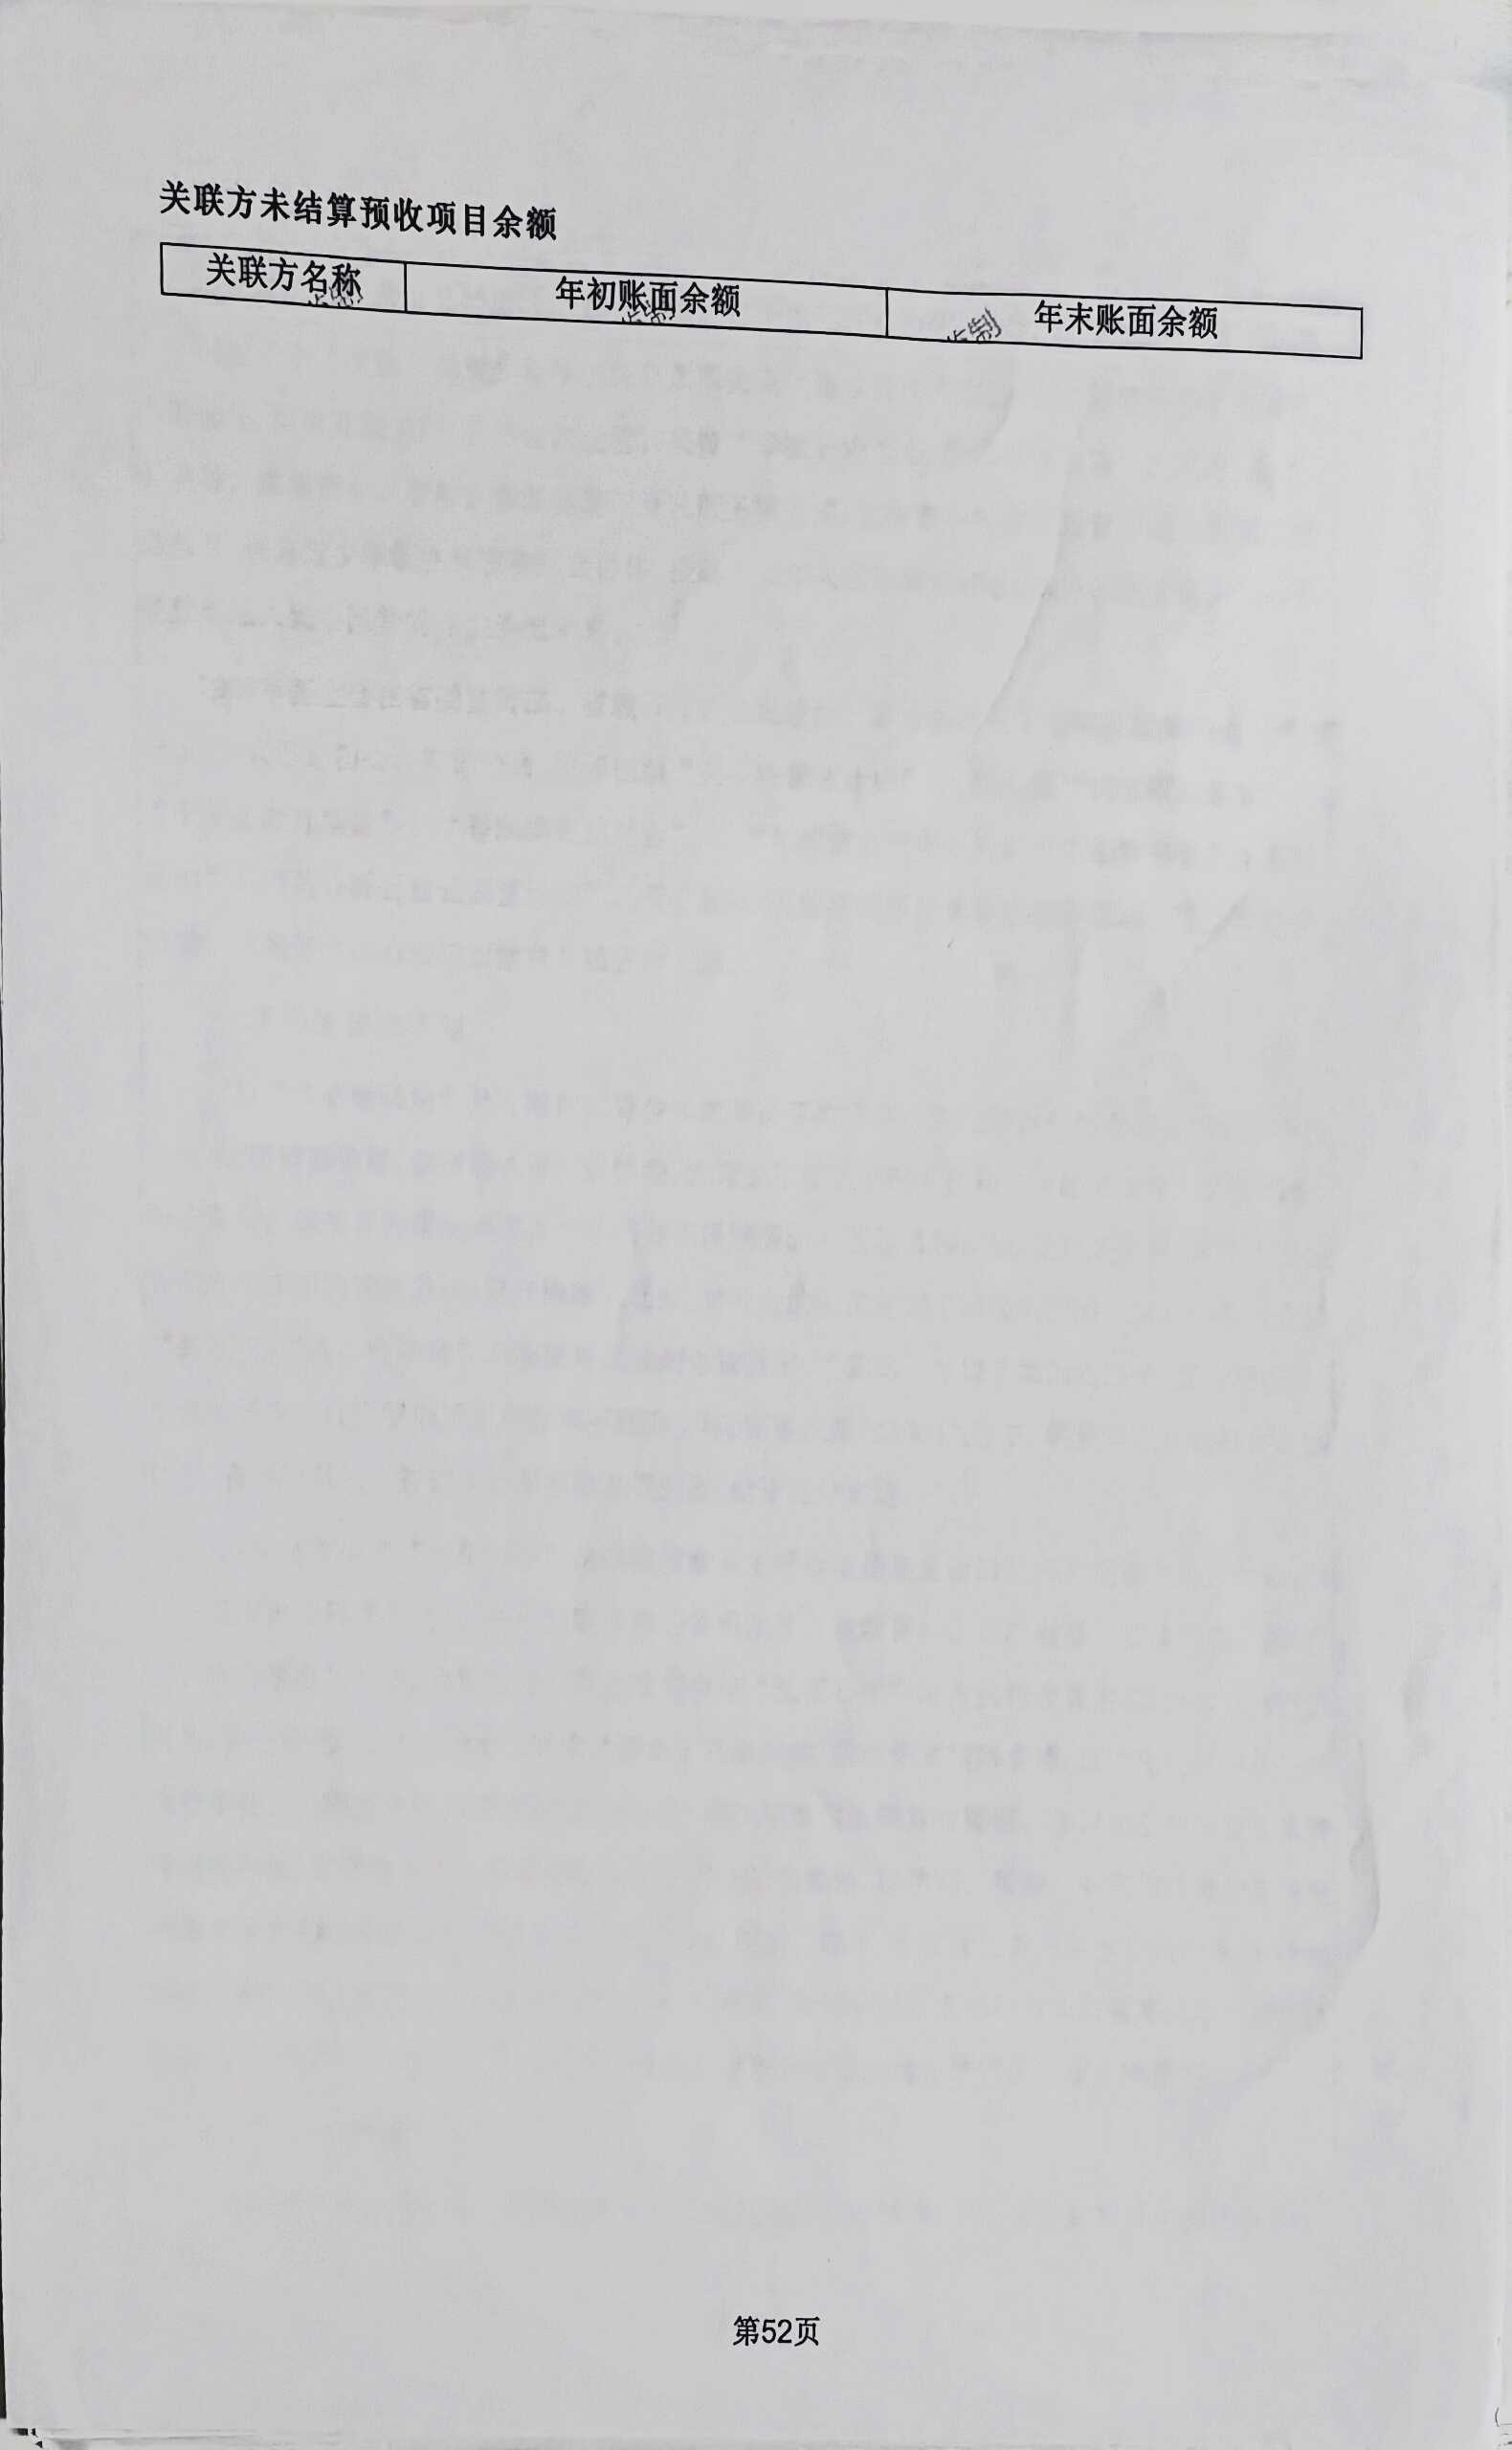 关联方未结算预收项目余额
关联方名称 年初账面余额 年末账面余额
第52页